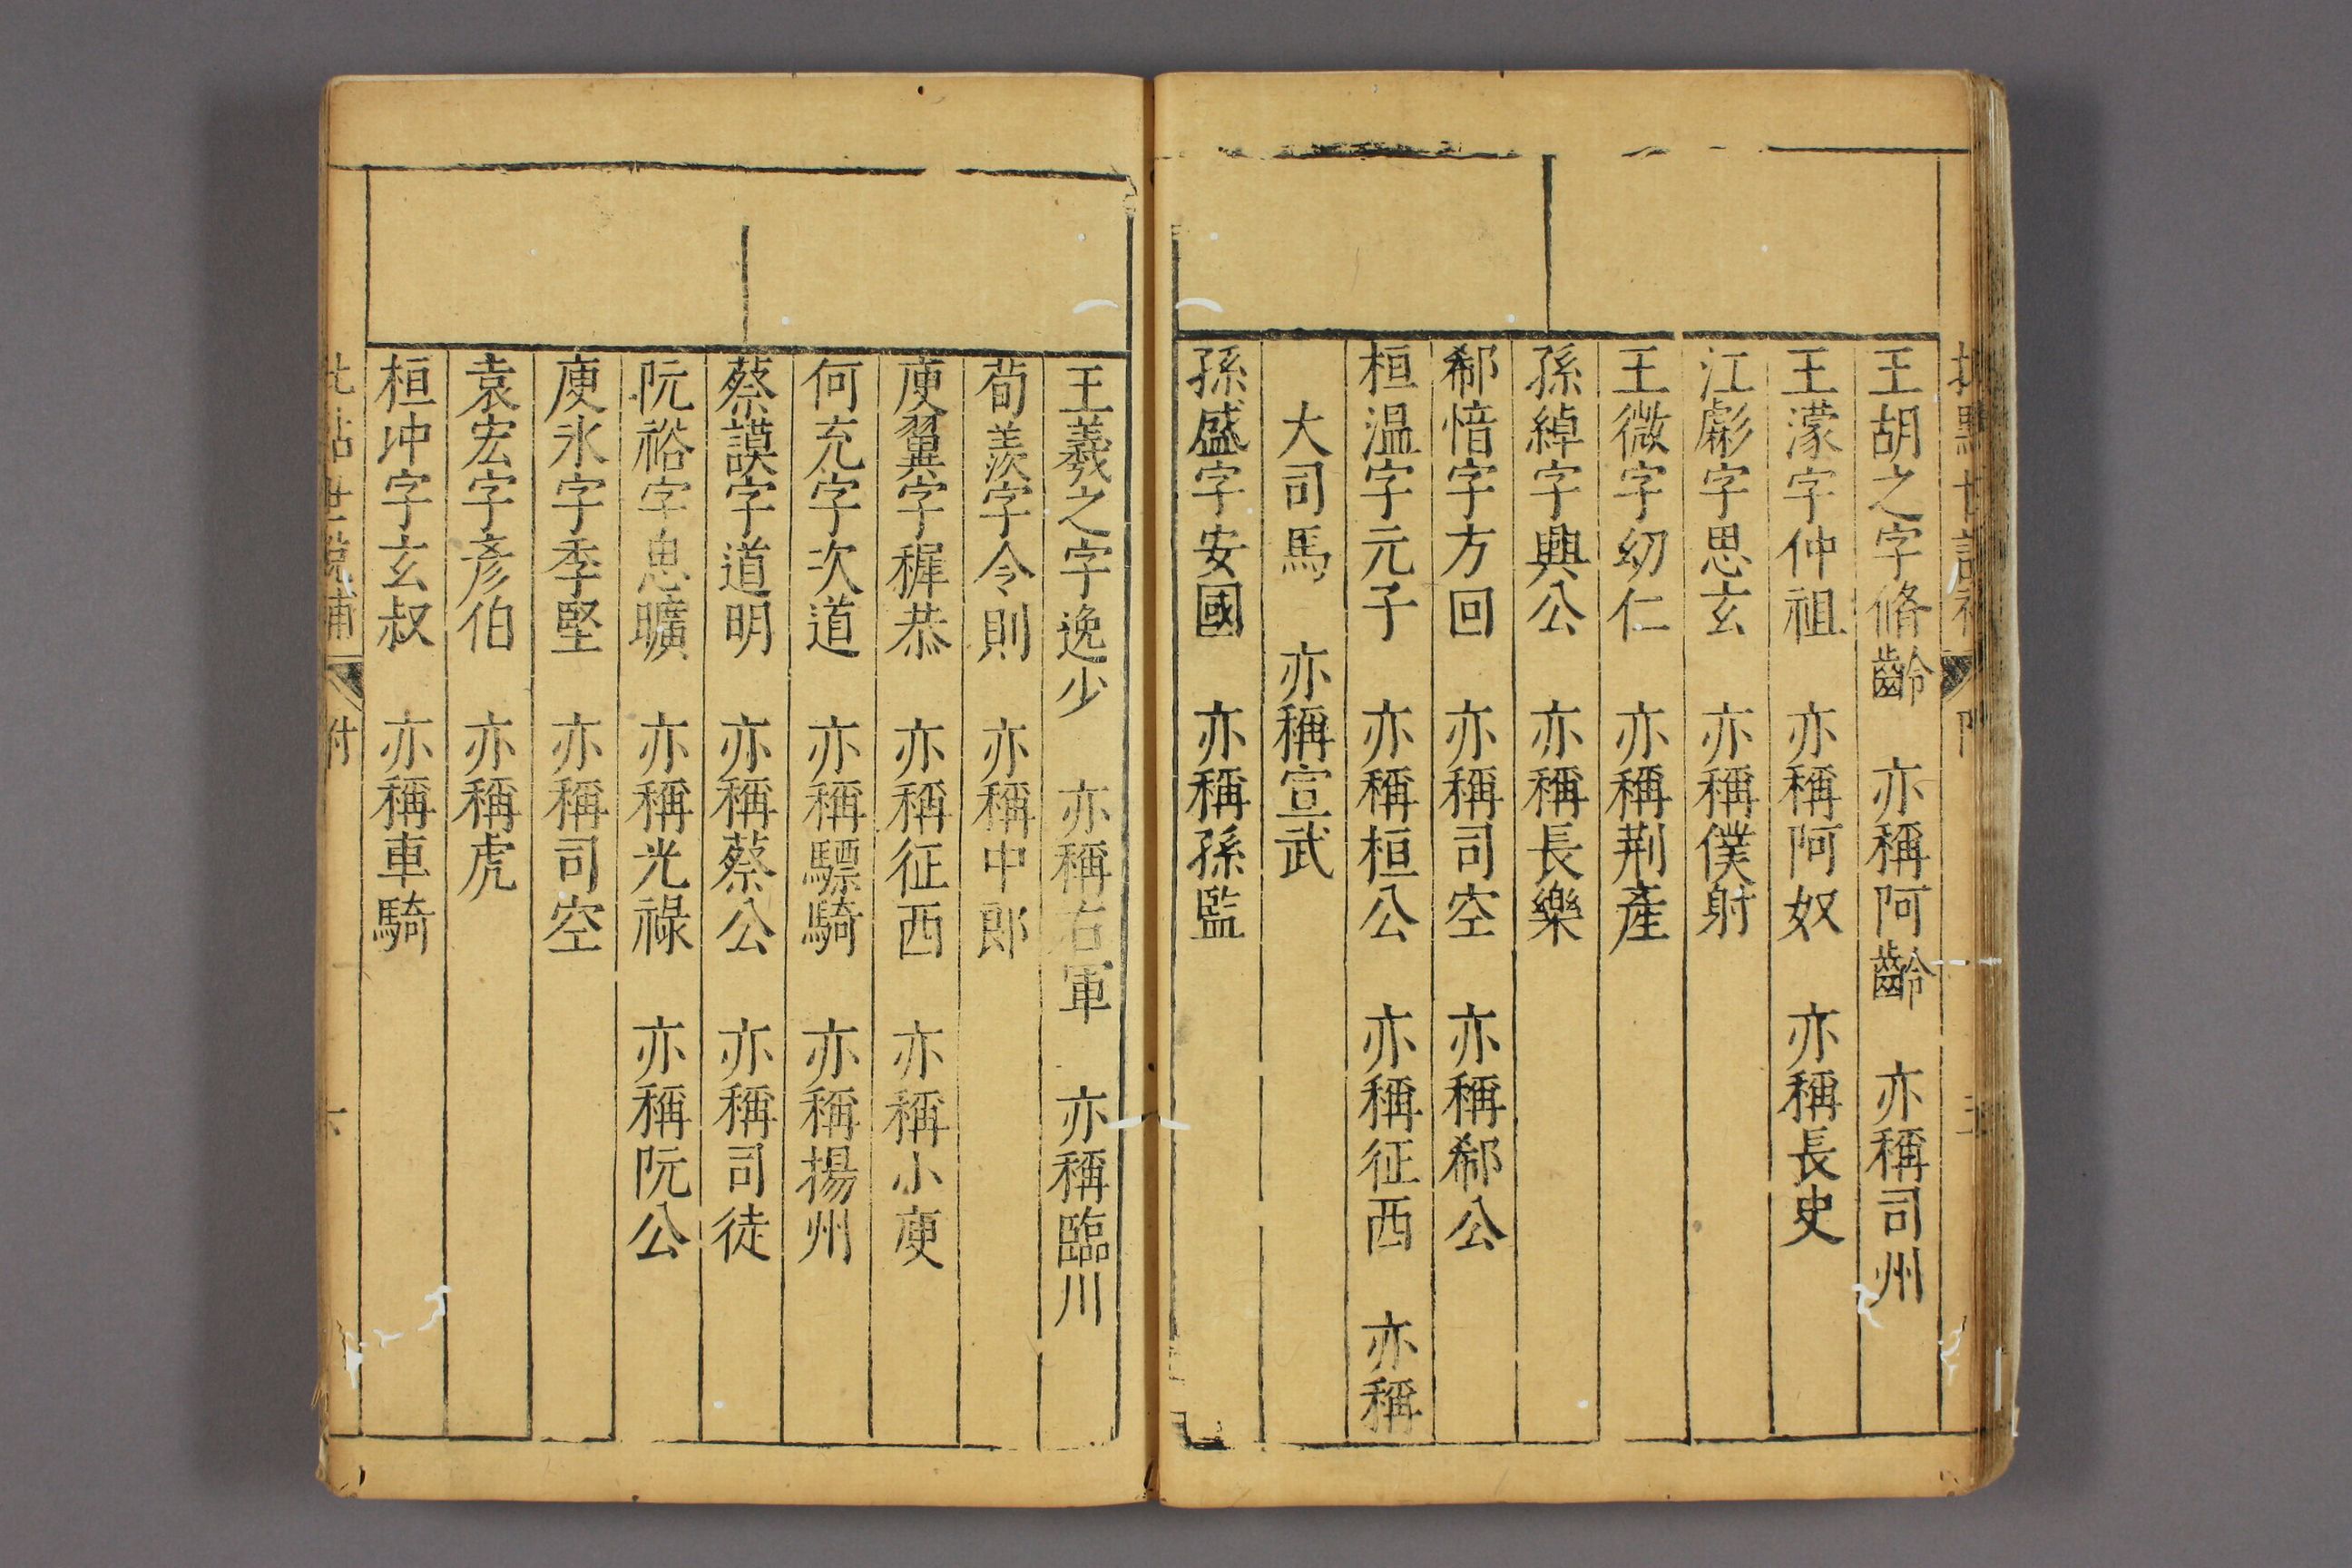 王胡之字脩齡　亦稱阿齡　亦稱司州
王濛字仲祖　亦稱阿奴　亦稱長史
江虨字思玄　亦稱僕射
王微字幼仁　亦稱荆產
孫綽字興公　亦稱長樂
郗愔字方回　亦稱司空　亦稱郗公
桓温字元子　亦稱桓公　亦稱征西　亦稱
大司馬　亦稱宣武
孫盛字安國　亦稱孫監
王羲之字逸少　亦稱右軍　亦稱臨川
荀羨字令則　亦稱中郎
庾翼字穉恭　亦稱征西　亦稱小庾
何充字次道　亦稱驃騎　亦稱揚州
蔡謨字道明　亦稱蔡公　亦稱司徒
阮裕字思曠　亦稱光祿　亦稱阮公
庾氷字季堅　亦稱司空
袁宏字彥伯　亦稱虎
桓冲字玄叔　亦稱車騎
世說補　附